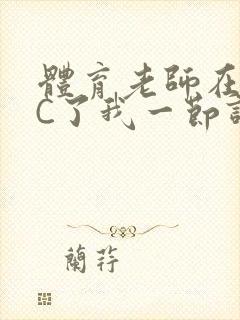 體育老師在
C了我一節
蘭荇